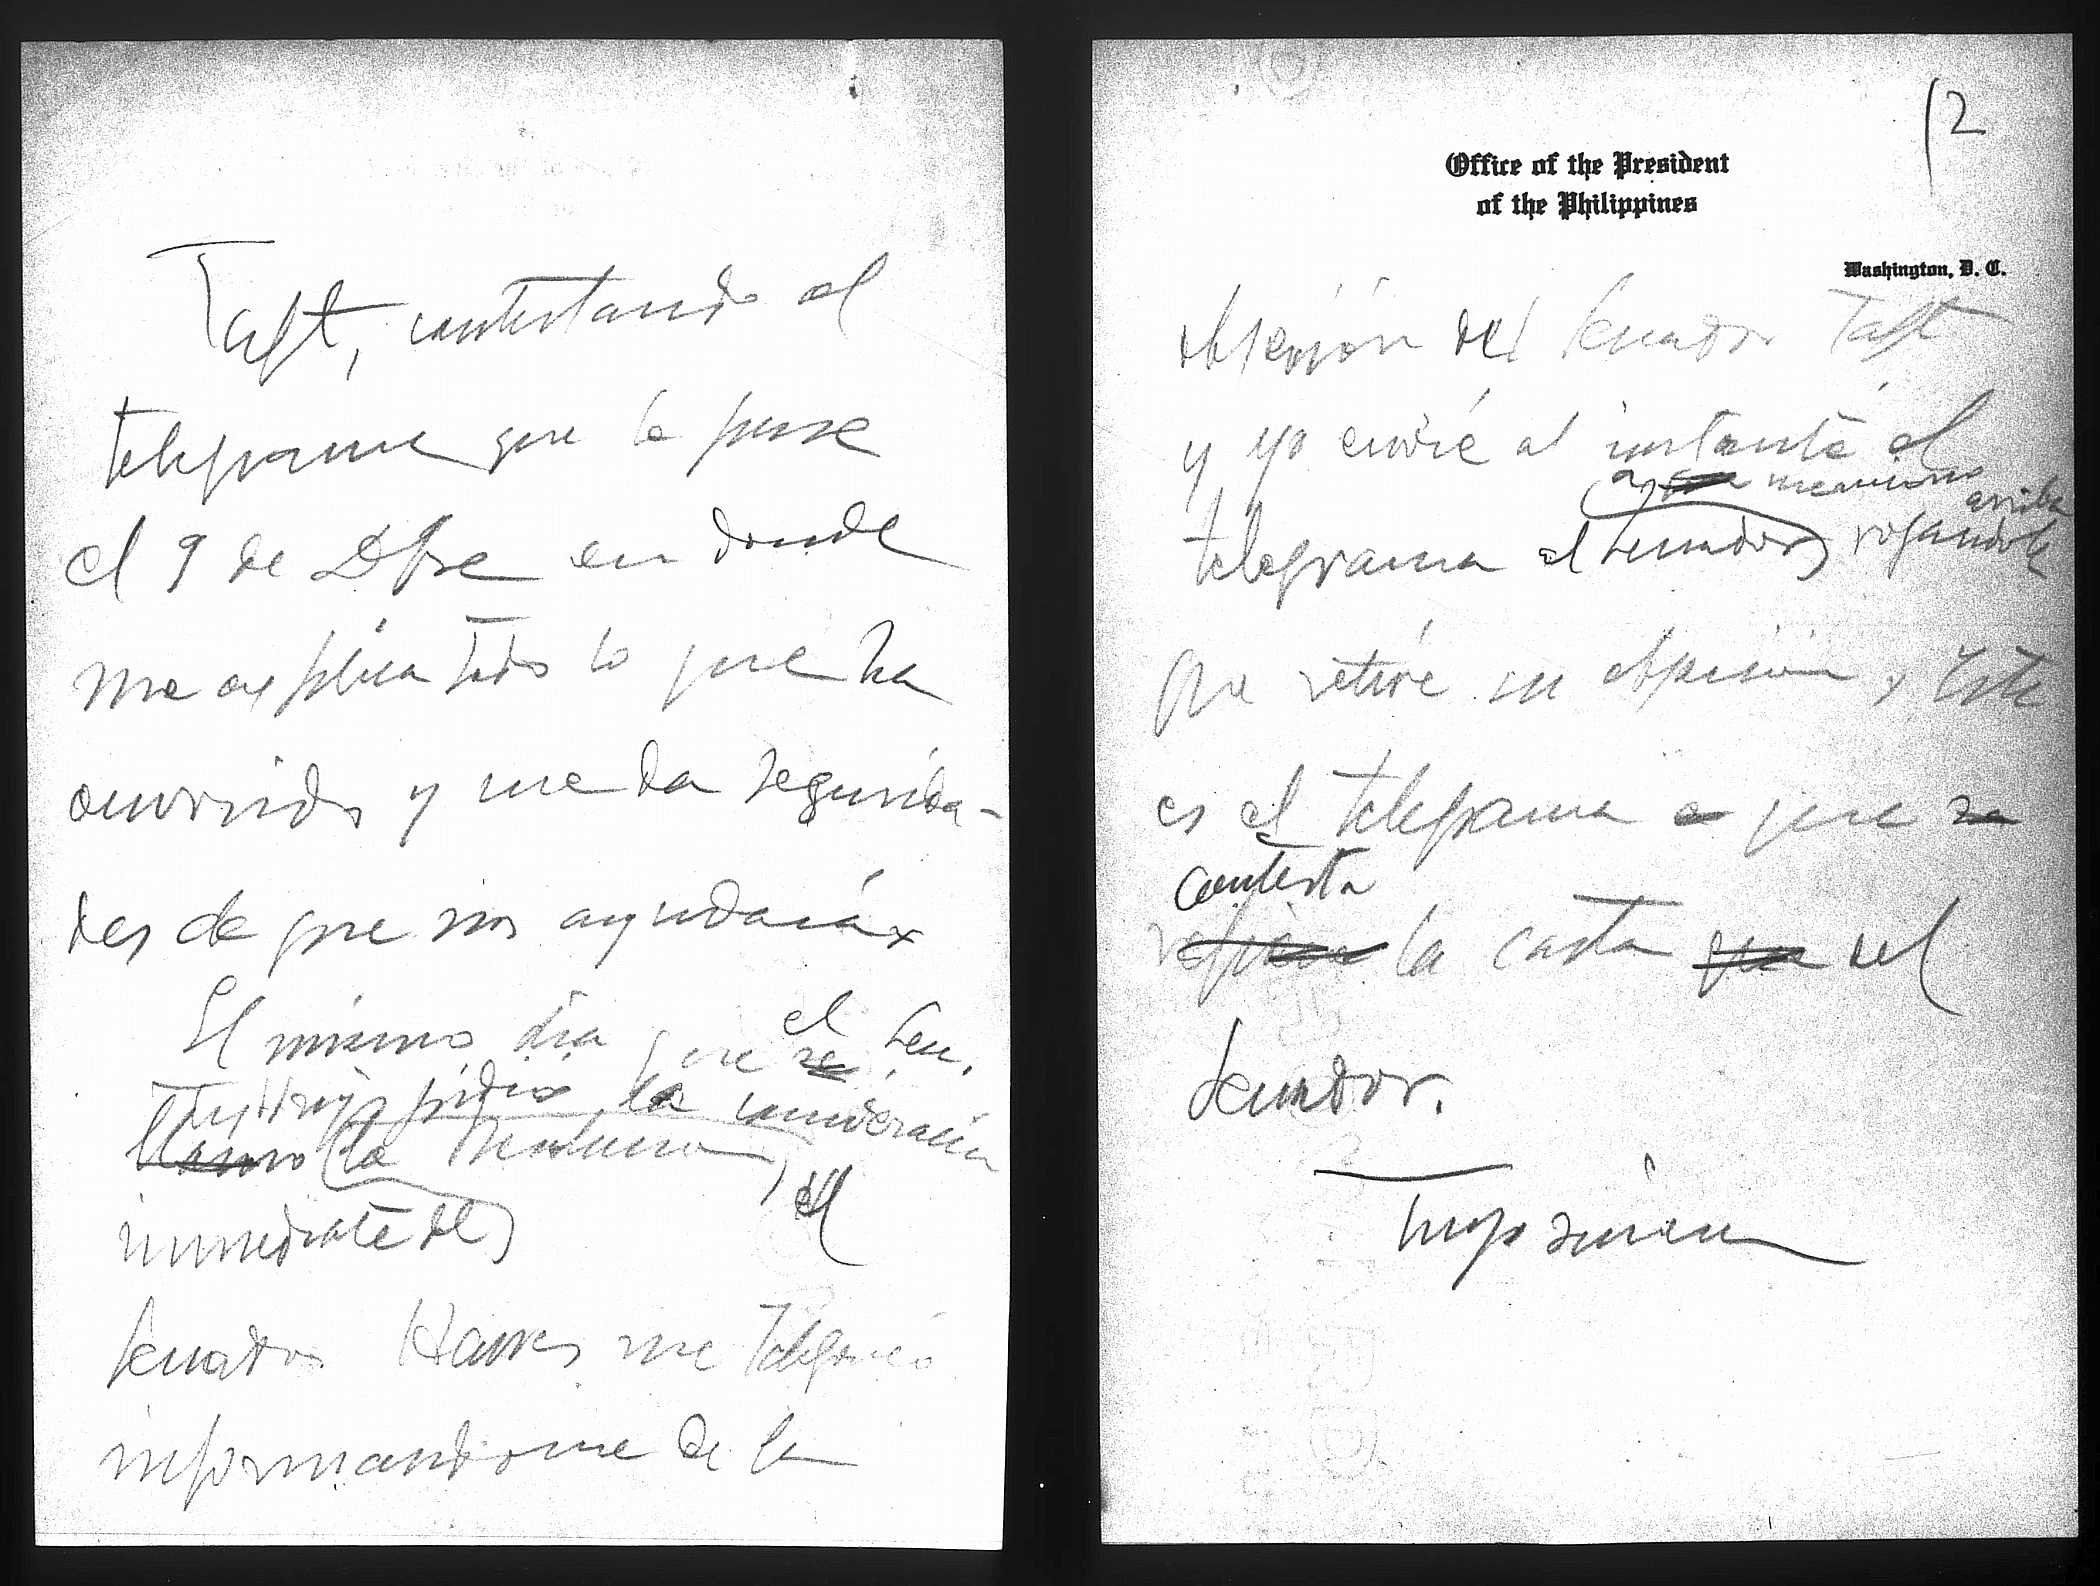 Taft, contestando al
telegrama que le puse
el 9 de Dbre en donde
me explica todo lo que ha
ocurrido y me da segurida-
des de que nos ayudará
El mismo dia que se el Sen.
Tydings pidio la consideración
llamo la
inmediata de
Senador Hawes me telefoneó
informandome de la
12
Office of the President
of the Philippines
Washington, D. C.
objeción del Senador Taft
y yo envié al instante el
a que menciono arriba
telegrama al Senador rogandole
que retire su objeción y este
es el telegrama a que se
contesta
refiere la carta que del
Senador.